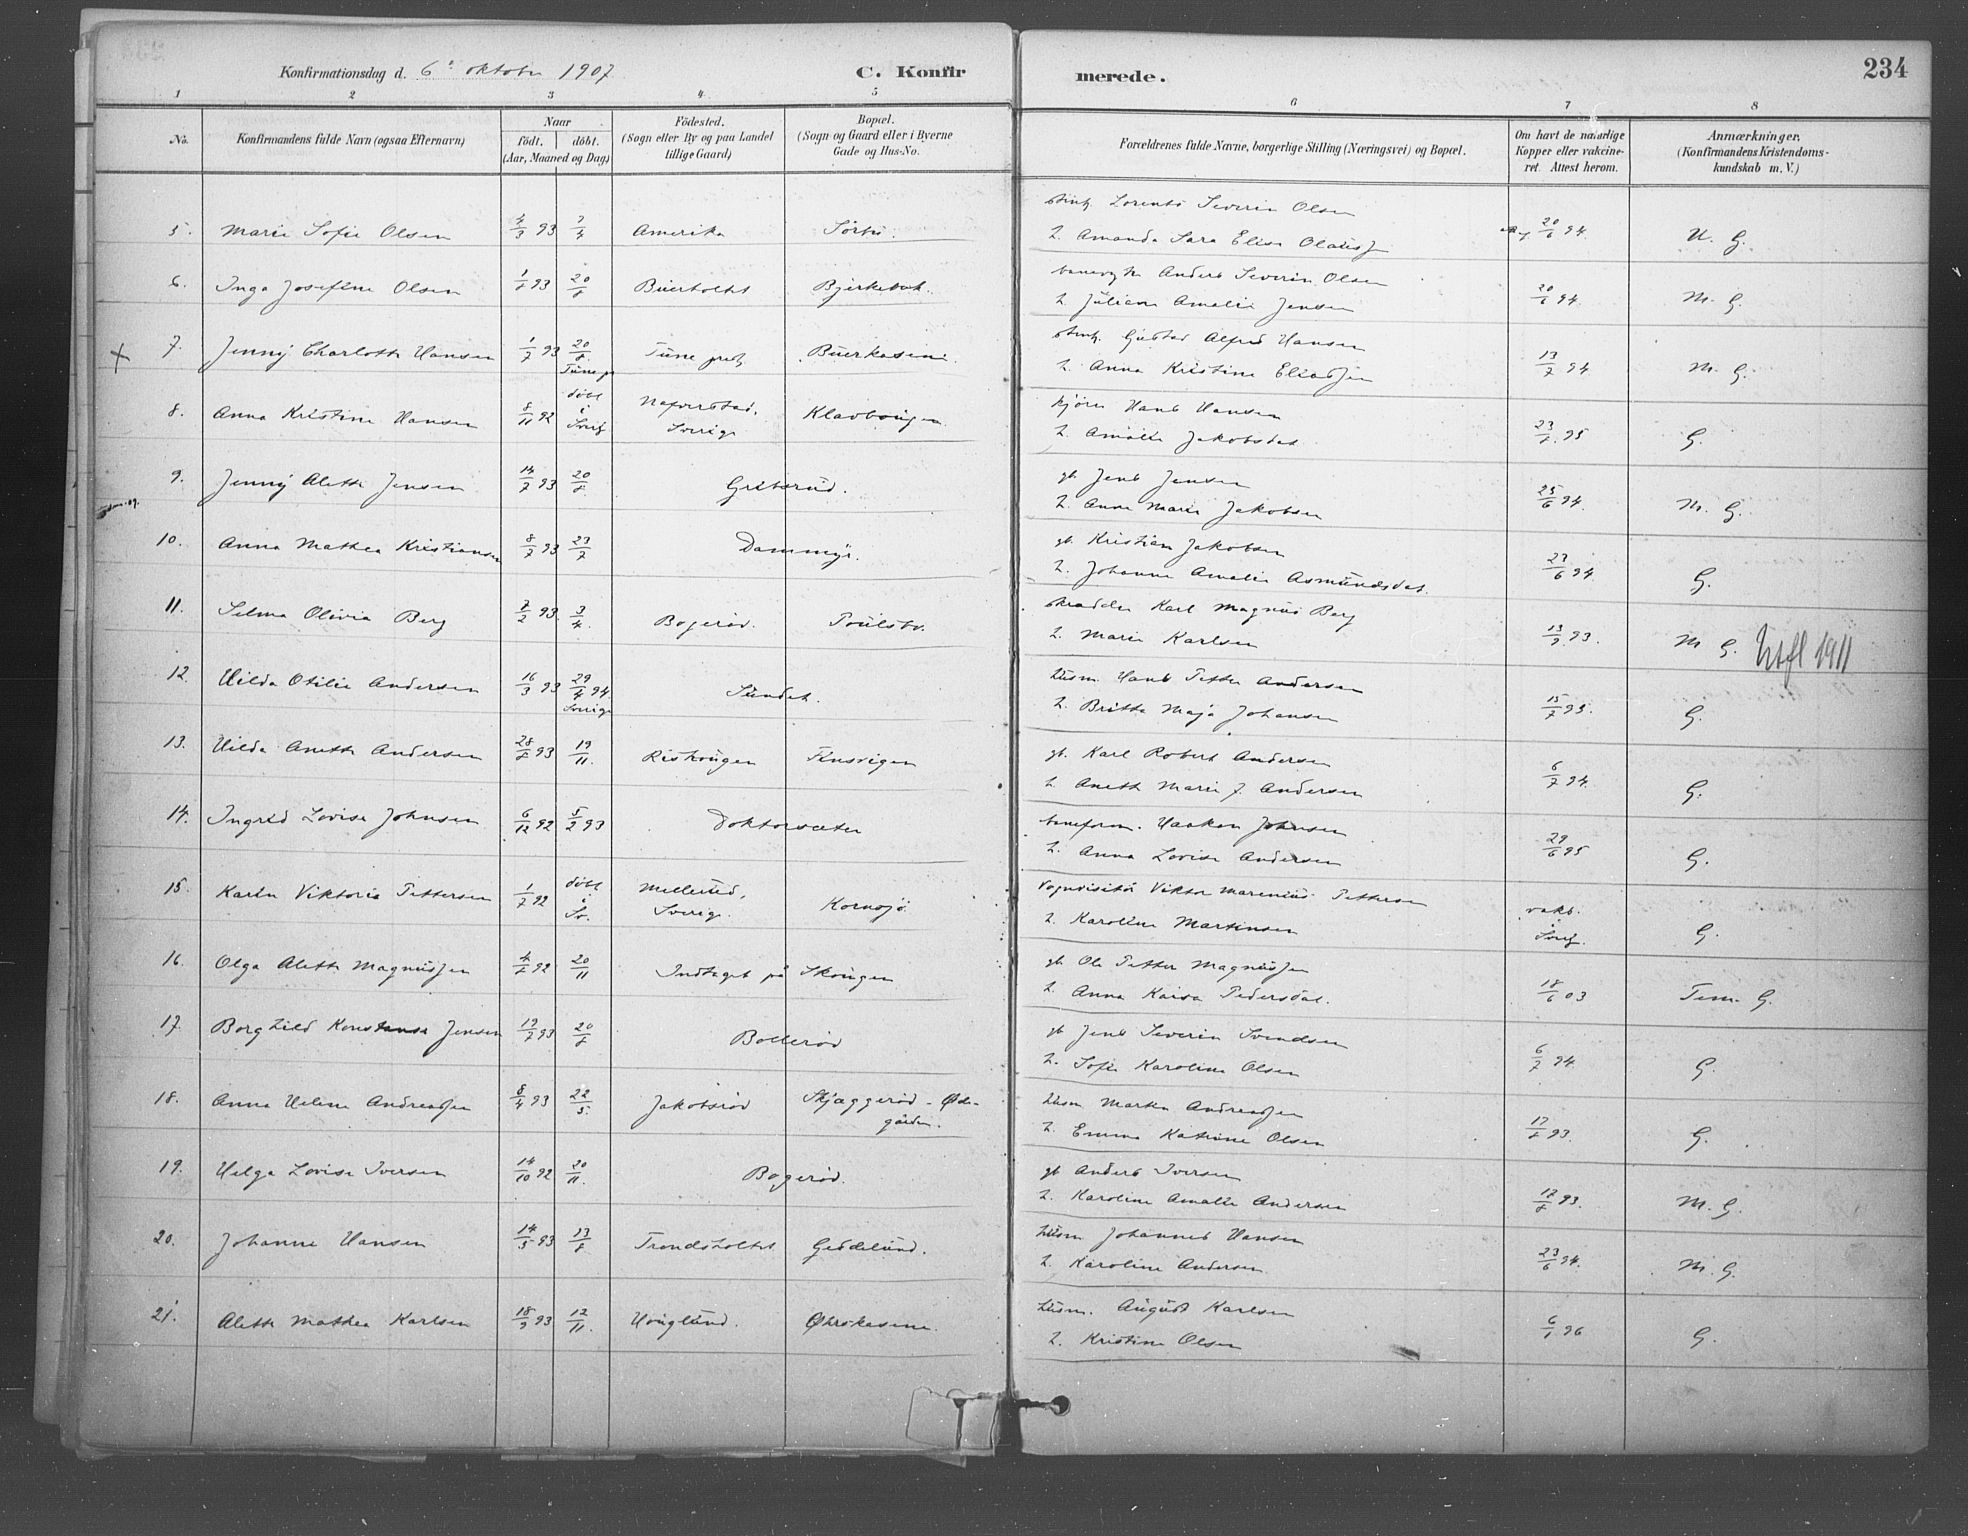 Konfirmationsdag d. 6' oktober 1907 C. Konfir merede. 234
1 2 3 4 5 6 7 8
No. Konfirmandens fulde Navn (ogsaa Efternavn) Naar født. døbt. (Aar, Maaned og Dag) Fødested. (Sogn eller By og paa Landet tillige Gaard) Bopæl. (Sogn og Gaard eller i Byerne Gade og Hus-No.
Forældrenes fulde Navne, borgerlige Stilling (Næringsvei) og Bopæl. Om havt de naturlige Kopper eller vakcineret. Attest herom. Anmærkninger. (Konfirmandens Kristendomskundskab m. V.)
5. Marie Sofie Olsen 4/3 93 7/4 Amerika Sørbø. Stenh. Lorents Severin Olsen
h. Amanda Sara Elise Olausen 20/6 94 M. G.
6. Inga Josefine Olsen 1/8 93 20/8 Buerholtet Bjerkebek. banevogter Anders Severin Olsen
h. Juliane Amalie Jensen 20/6 94 M. G.
7. Jenny Charlotte Hansen 1/7 93 20/8 Tune prgj. Buerkasene. Stenh. Gustav Alfred Hansen
h. Anna Kristine Eliassen 13/7 94 M. G.
8. Anna Kristine Hansen 8/11 92 døbt i Sverig Naverstad, Sverige Klavhougen kjører Hans Hansen
h. Amalie Jakobsdat. 23/8 95 G.
9. Jenny Alette Jensen 14/7 93 20/8 Gribsrød. gb. Jens Jensen
h. Anne Marie Jakobsen 25/6 94 M. G.
10. Anna Mathea Kristiansen 8/7 93 23/7 Dammyr. gb. Kristian Jakobsen
h. Johanne Amalie Asmundsdat. 27/6 94 G.
11. Selma Olivia Berg 7/2 93. 3/4. Bøgerød. Poulsbo. skrædder Karl Magnus Berg
h. Marie Karlsen 13/9 93. M G. Utfl 1911
12. Hilda Otilie Andersen 16/3 93 29/4 94 Sverige Sundet. husm. Hans Petter Andersen
h. Britta Maja Johansen 15/7 95. G.
13. Hilda Anette Andersen 28/8 93 19/11. Rishougen Finsvigen gb. Karl Robert Andersen
h. Anette Marie J. Andersen 6/7 94. G.
14. Ingrid Lovise Johnsen 6/12 92 5/2 93 Doktorsæter baneform. Haakon Johnsen
h. Anna Lovise Andersen 29/6 95 G.
15. Karin Viktoria Pettersen 1/7 92 døbt i Sv. Mellerud, Sverige. Kornsjø Vognvisitør Viktor Marenius Pettersen
h. Karoline Martinsen vakc. i Sverig. G.
16. Olga Alette Magnussen 4/8 92 20/11 Indtaget på Skougen gb. Ole Petter Magnussen
h. Anna Kaisa Pedersdat. 18/6 03 Tem. G.
17. Borghild Konstanse Jensen 19/7 93 20/8 Bollerød gb Jens Severin Svendsen
h. Sofie Karoline Olsen 6/7 94. G.
18. Anna Helene Andreassen 8/4 93 22/5. Jakobsrød Skjæggerød - Ødegården. husm Martin Andreassen
h. Emma Katrine Olsen 17/8 93. G.
19. Helga Lovise Iversen 14/10 92 20/11. Bøgerød. gb Anders Iversen
h. Karoline Amalie Andersen 17/8 93. M. G.
20. Johanne Hansen 14/5 93 13/8 Trondsholtet Geddelund. husm Johannes Hansen
h. Karoline Andersen 23/6 94. M. G.
21. Alette Mathea Karlsen 18/9 93 12/11. Houglund. Ørskasene. husm. August Karlsen
h. Kristine Olsen 6/1 96 G.